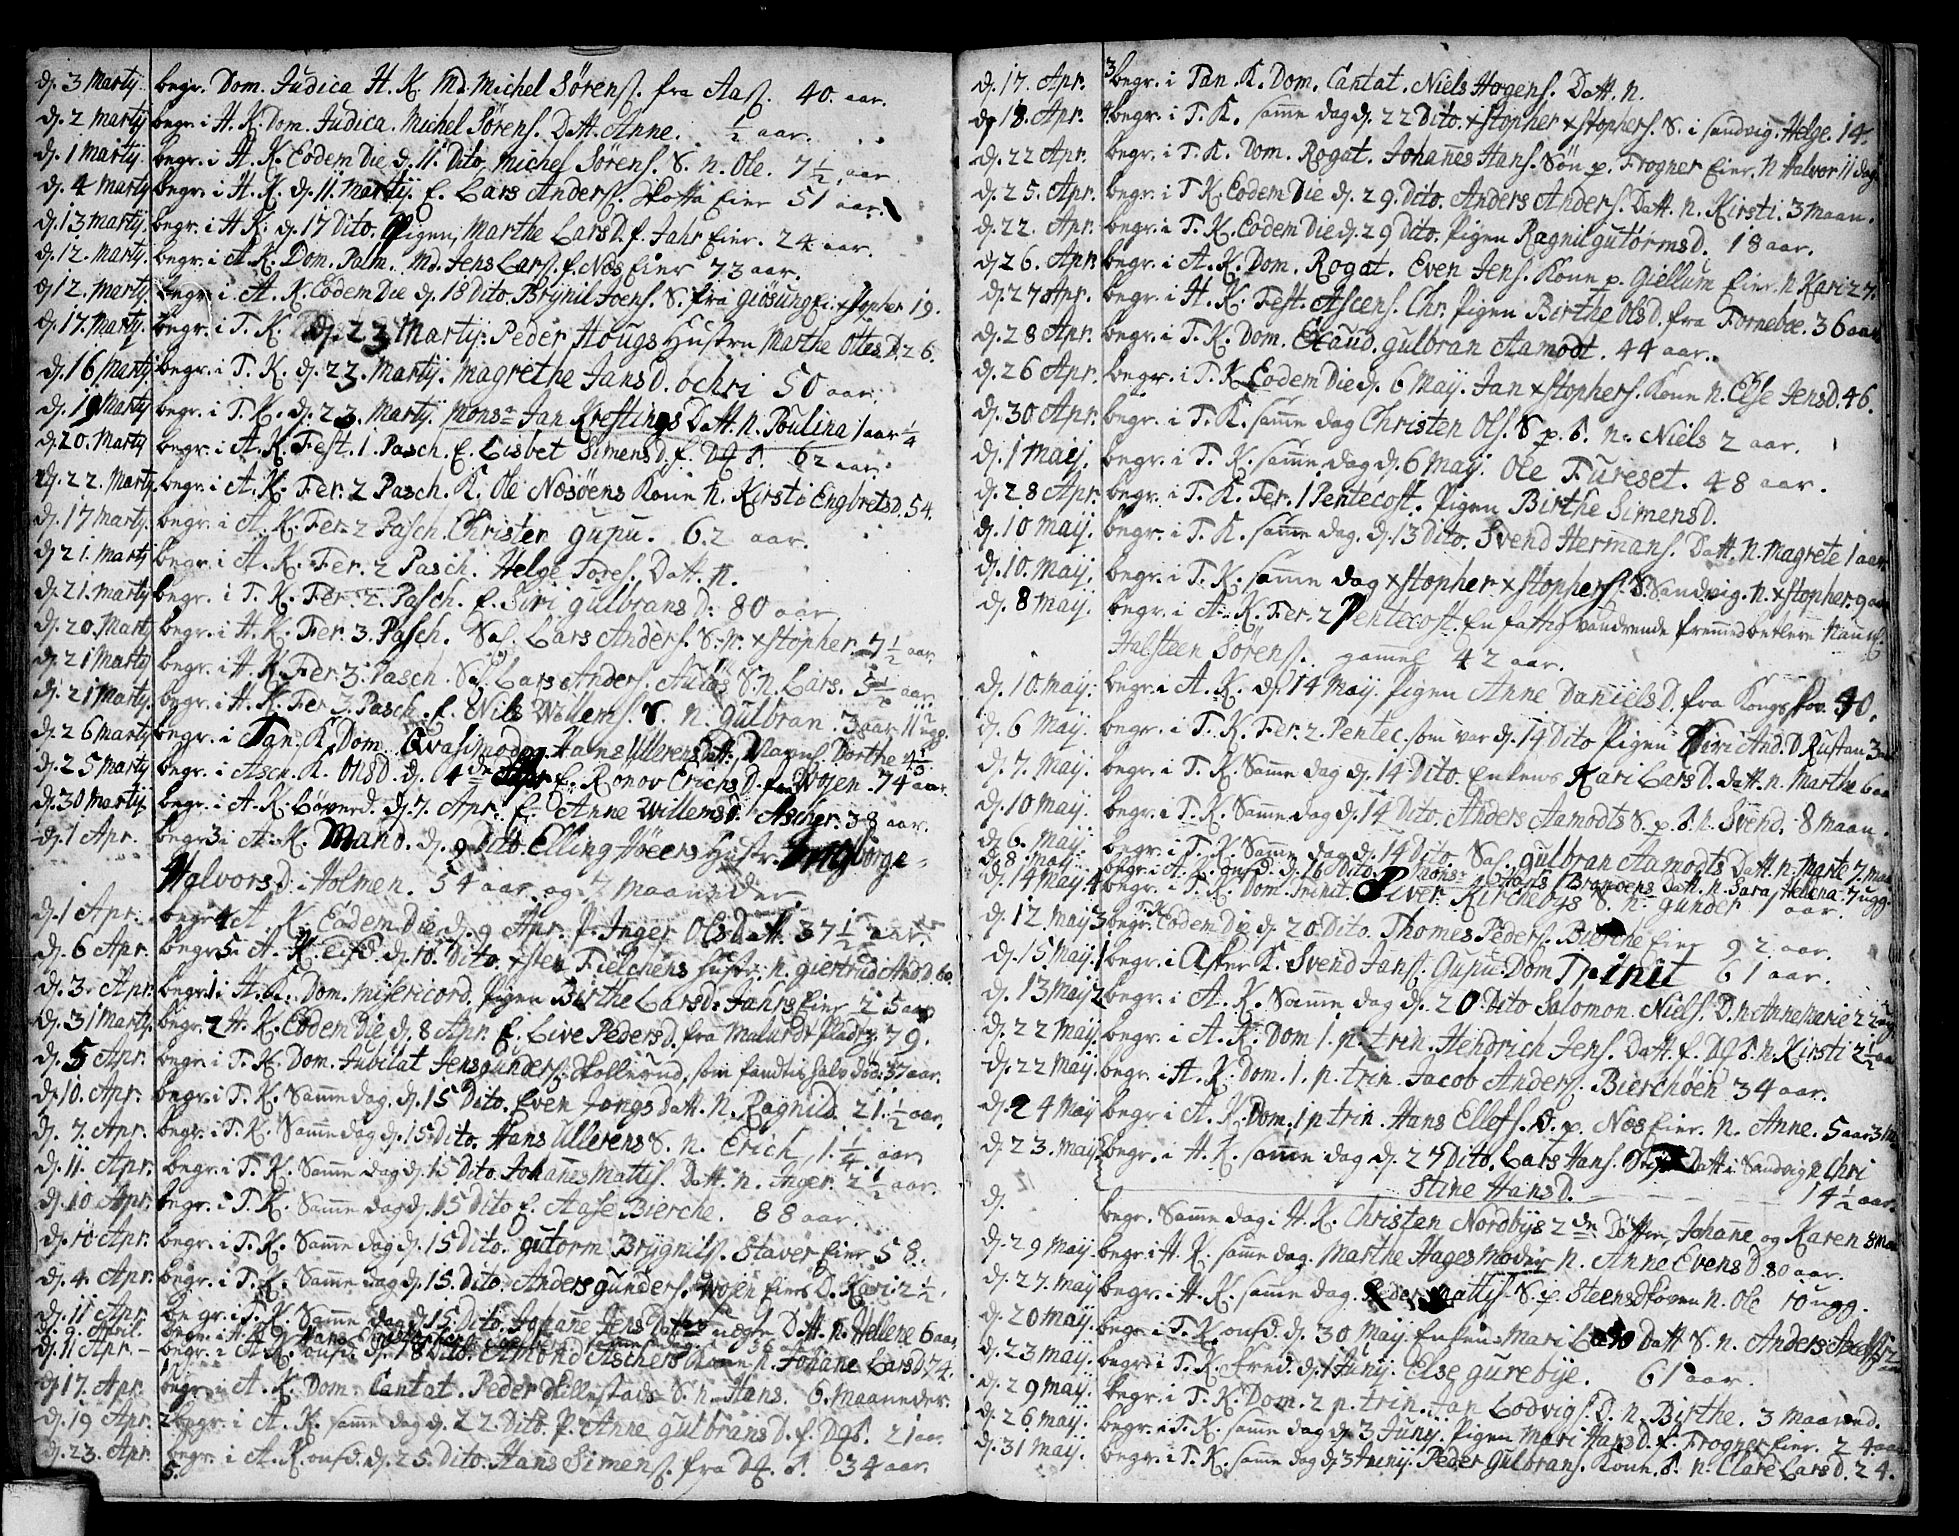 dj. 3 Martij. begr. Dom. Judica H. K. Md. Michel Sörens. fra Aas. 40. aar.
dj. 2 martij begr. i H. K. Dom. Judica. Michel Sörens. Datt. Anne. ½ aar.
dj. 1 martij begr. i H. K. Eodem Die dj. 11. Dito. Michel Sörens. S. n. Ole. 7 ½ aar
dj. 4 marty begr. i H. K. dj. 11. martij. f. Lars Anders. Skotta Eier 51 aar.
dj. 13 martij begr. i H K. dj. 17 Dito. Pigen, Marthe LarsD. f. Jahr Eier. 24 aar.
dj. 12. marty. begr. i A. K. Dom. Palm. Md. Jens Lars. f. Næs Eier 73 aar.
dj 12. marty begr. i A. K. Eodem Die dj. 18 Dito. Brynil Joens. S. fra giösung Ei. xstopher 19.
dj. 17. Marty. begr. i T. K. dj. 23 Martij. Peder Hougs Hustru Marthe OttesD. 26.
dj. 16 Martij begr. i T. K. dj. 23. Martij. Magrethe JansD. ochri 50 aar.
dj. 19 Marty begr. i T. K. dj. 23. Martij Monsr. Jan Kreftings Datt. n. Poulina 1 aar ¼
dj. 20. Marty begr. i A. K. Fest. 1. Pasch. E. Lisbet SimensD. f. 62 aar.
dj. 22. Marty. begr. i A. K. Fer. 2 Pasch. K. Ole Nosöens Kone n. Kirsti EngbretsD. 54.
dj. 17 marty. begr. i A. K. Fer. 2 Pasch. Christen gupu. 62 aar.
dj 21. marty begr. i A. K. Fer. 2 Pasch. Helge Datt. n.
dj. 21. marty begr. i T. K. Fer. 2. Pasch. E. Siri gulbransD. 80 aar
dj. 20. Marty begr. i H. K. Fer. 3. Pasch. Sal. Lars Anders. S. n. xstopher 7 ½ aar.
dj. 21 Marty begr. i H. K. Fer. 3. Pasch. Sal. Lars Anders. S. n. Lars. aar.
dj. 21 Marty. begr. i H. K. Fer. 3. Pasch. f. Nils Willems. S. n. gulbran. 3 aar 11 ugg.
dj. 26 marty begr. i Tan. K. Dom Qvasimodog. Hans Ullerens Datt. Dorthe
dj. 25 Marty begr. i Asch. K. OnsD. dj. 4de Apr. E. Ronov ErichsD. fra Wøyen 74 aar.
dj. 30 Martij begr. i A. K. LöverD. dj. 7. Apr. E. Anne WillemsD. Ascher. 38 aar.
dj. 1 Apr. begr. 3 i A. K. Mand. dj. 9 Dito Elling Höeers Hustr. Ingborge
HalvorsD. i Holmen. 54 aar og 7 maaneder.
dj. 1 Apr. begr. 4 A. K. Eodem Die dj. 9 Apr. P. Inger Ols Datt. 37 ½ aar.
dj. 6 Apr. begr. 5 i A. K. dj. 10. Dito. xsten Fielchens Hustr. n. giertrud AndD. 60.
dj. 3. Apr. begr. 1 i A. K. Dom. Misericord. Pigen Birthe LarsD. Jahrs Eier 25 aar
dj. 31 Marty. begr. 2 H. K. Eodem Die dj. 8 Apr. E. Live PedersD. fra Plads. 79.
dj. 5 Apr. begr. i T. K. Dom. Jubilat Jens gunders. Skollerud, som fandtis halv död. 37 aar.
dj. 10. Apr. begr. i T. K. Samme dag. dj. 15 Dito. Even Jongs Datt. n. Ragnild. 21. ½ aar.
dj. 7. Apr. begr. i T. K. Samme dag dj. 15 Dito. Hans Ullerens S. n. Erich, 1. ¼ aar
dj. 11. Apr. begr. i T. K. Samme dag dj. 15 Dito. Johanes Mattis. Datt. n. Inger. 2 ½ aar.
dj. 10 Apr. begr. i T. K. Samme dag dj. 15 Dito E. Aase Bierche. 88 aar.
dj. 10 Apr. begr. i T. K. Samme dag dj. 15 Dito. gutorm Brÿgnils. Staver Eier 58.
dj. 4. Apr. begr. i T. K. Samme dag dj. 15. Dito. Anders gunders. Wojen Eiers D. Kari 2 ½.
dj. 11 Apr. begr. i T. K. Samme dag dj. 15. Dito. Johanne Jens Datt. D. n. Hellene 6 aar
dj. 9 April. begr. i H. K.
dj. 11 Apr. begr. i A. K. onsd. dj. 18 Dito. Amond Aschers Kone n. Johane LarsD. 74.
dj. 17. Apr. begr. i A. K. Dom. Cantat. Peder Skillestads S. n. Hans. 6. Maaneder.
dj. 19 Apr. 2 begr. i A. K. samme dag dj. 22 Dito. P. Anne gulbransD. f. 21 aar.
dj. 23. Apr. begr. i A. K. onsd. dj. 25. Dito. Hans Simens. fra 34 aar.
5.
dj. 17. Apr. 3 begr. i Tan. K. Dom. Cantat. Niels Hogens. Datt. n.
dj 18. Apr. 4 begr. i T. K. samme dag dj. 22 Dito. xstopher xstophers. S. i sandvig. Helge. 14.
dj. 22 Apr. begr. i T. K. Dom. Rogat. Johanes Hans. Sön p. Frogner Eier. n Halvor 11 dag
dj. 25. Apr. begr. i T K. Eodem Die dj. 29. Dito. Anders Anders. Datt. n. Kirsti. 3 maan.
dj. 22. Apr. begr. i T. K. Eodem Die dj. 29 Dito. Pigen Ragnil gutormsD. 18 aar.
dj 26. Apr. begr. i A. K. Dom. Rogat. Even Jens. Kone p. Giellum Eier n Kari 27.
dj. 27 Apr. begr. i H. K. Fest. Ascens. Chr. Pigen Birthe OlsD. fra Forneboe. 36 aar
dj. 28 Apr. begr. i T. K. Dom. Exaud. gulbran Aamodt. 44 aar.
dj. 26 Apr. begr. i T. K. Eodem Die dj. 6 May. Jan xstophers. Kone n. Else JensD. 46.
dj. 30 Apr. begr. i T. K. samme dag Christen Ols. S. p. n. Niels 2 aar.
dj. 1 maij. begr. i T. K. samme dag dj. 6 Maij. Ole Fureset. 48 aar.
dj. 28 Apr. begr. i T. K. Fer. 1 Pentecost. Pigen Birthe SimensD.
dj. 10 maij. begr. i T. K. samme dag. dj. 13 Dito. Svend Hermans. Datt. n. Magrete 1 aar
dj. 10. Maij. begr. i T. K. samme dag xstopher xstophers. S. Sandvig. n. xstopher. 9 aar
dj. 8 Maij. begr. i A. K. Fer. 2 Pentecost. En fattig vandrende fremmed betlere
Halsteen Sörens. gammel 42 aar.
dj. 10. Maij. begr. i A. K. dj. 14 Maij. Pigen Anne DanielsD. fra Kongsskov. 40.
dj. 6 May. begr. i T. K. Fer. 2. Pentec. som var dj. 14 Dito Pigen Siri And.D. Rustan
dj. 7. May. begr. i T. K. Samme dag dj. 14 Dito. Enkens Kari LarsD. Datt. n. Marthe 6 aa
dj. 10 Maij. begr. i T. K. Samme dag dj. 14 Dito. Anders Aamodts S. p. n. Svend. 8 maan.
dj. 6. Maij. begr. i T. K. Samme dag dj. 14 Dito. Sal. gulbran Aamodts Datt. n. Marte 7. maa
dj. 8 May. begr. i A. K. onsd. dj. 16 Dito. Monsr. Hans Brandens Datt. n. Sara Helena. 7 ugg.
dj. 14 May 4 begr. i T. K. Dom. Trinit. Siver Kirchebys S. n. gunder 1 aar.
dj. 12. May 3 begr. T. K. Eodem Die dj. 20. Dito. Thomes Peders. Bierche Eier 92. aar.
dj. 15. May. 1 begr. i Asker K. Svend Jans. Gupu. Dom Trinit 61 aar.
dj. 13 May 2 begr. i A. K. Samme dag dj. 20. Dito Salomon Niels. D. n. Annemarie 22 ug
dj. 22 may. begr. i A. K. Dom. 1. p. trin. Hendrich Jens. Datt. f. n. Kirsti 2 ½ aa
dj. 22 Maij. begr. i A. K. Dom. 1. p. trin. Jacob Anders. Bierchöen 34 aar.
dj. 24 May begr. i A. K. Dom. 1 p trin. Hans Ellefs. D. p. Næs Eier. n. Anne. 5 aar 3
dj. 23. may. begr. i H. K. samme dag dj. 27 Dito. Lars Hans. Datt. i Sandvig n. Chri
stine HansD. 14 ½ aar.
dj. begr. Samme dag i H. K. Christen Nordbÿs 2de Döttre, Johanne og Karen 8 maa
dj. 29 Maij. begr. i H. K. samme dag. Marthe Hages Moder n. Anne EvensD. 80 aar.
dj. 27. may begr. i H. K. samme dag. Peder Mattis. S. p. Steenskoven n. Ole 10 ugg.
dj. 20 maij. begr. i T. K. onsd. dj. 30 Maij. Enken Mari Datt S. n. Anders
dj. 23 maij. begr. i T. K. fred. dj. 1 Junij. Else gurebÿe. 61 aar.
dj. 29 maij. begr. i T. K. Dom. 2 p. trin. Jan Lodvigs. D. n. Birthe. 3 maaned.
dj. 26 maij. begr. i T. K. samme dag dj. 3 Junij. Pigen Mari HansD. f. Frogner Eier. 24 aar
dj. 31 Maij. begr. i T. K. samme dag dj 3 Junij. Peder Gulbrans. Kone. n. Clare LarsD. 24.